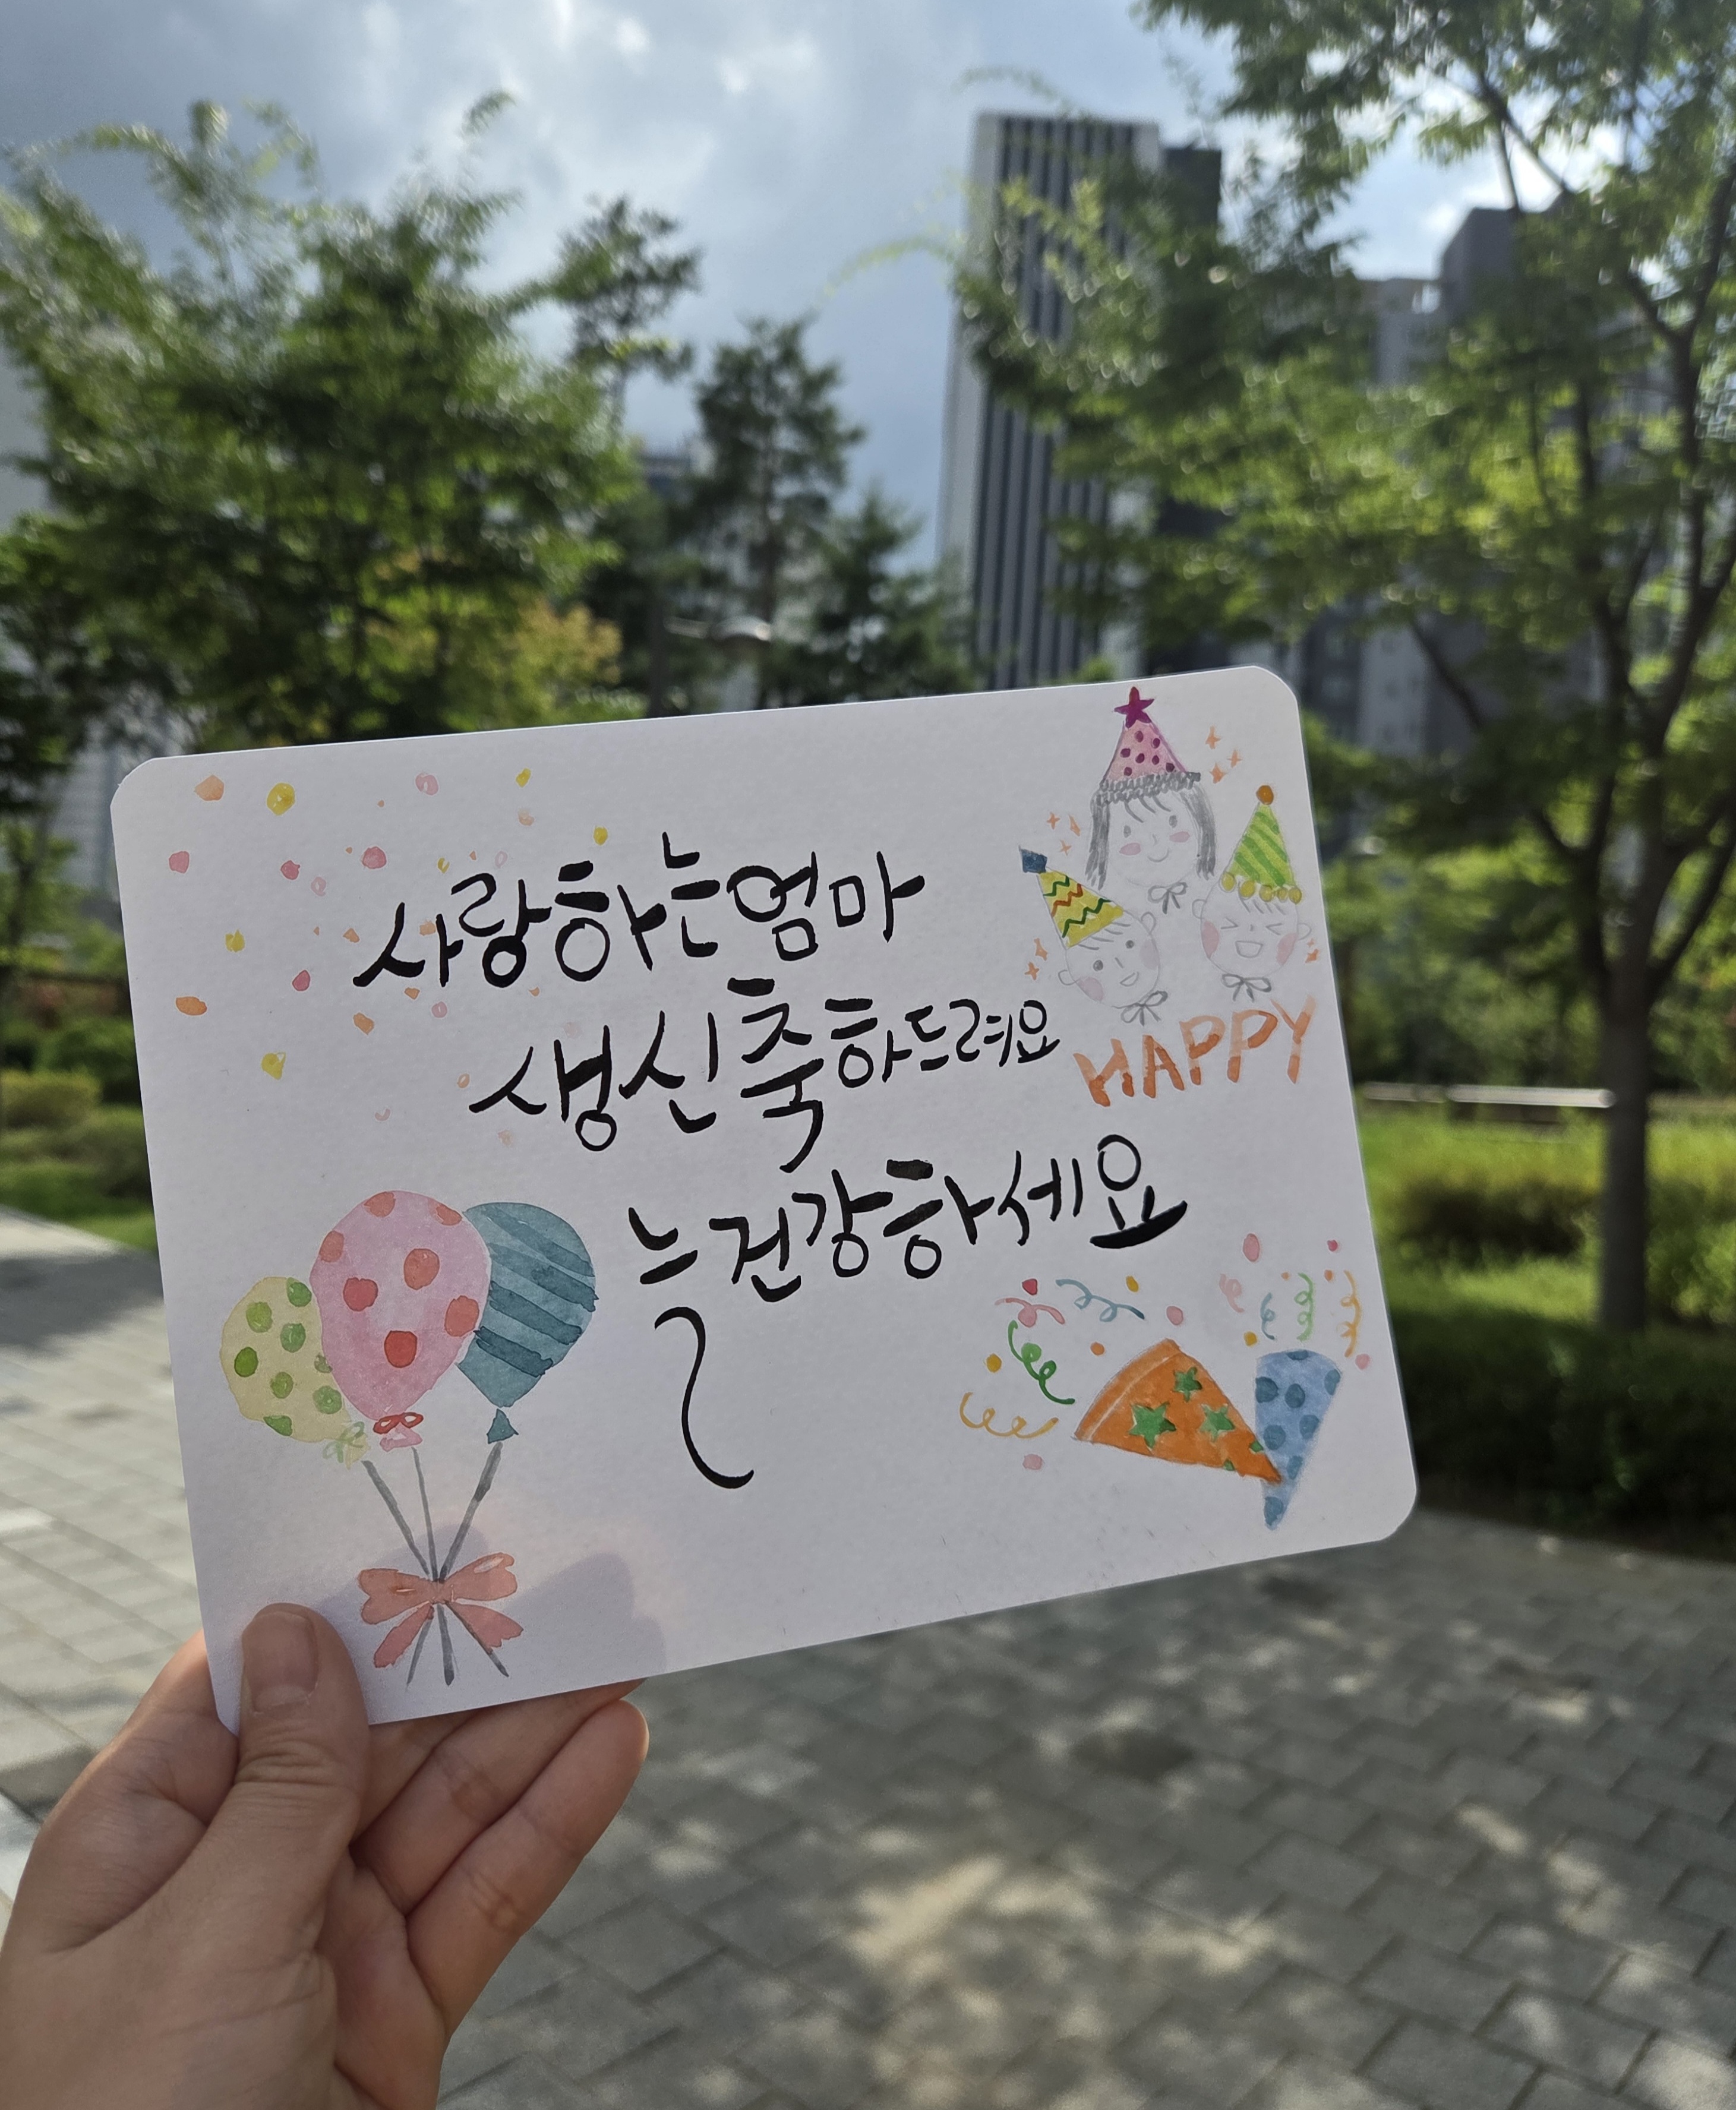 사랑하는 엄마
생신 축하드려요
HAPPY
늘 건강하세요